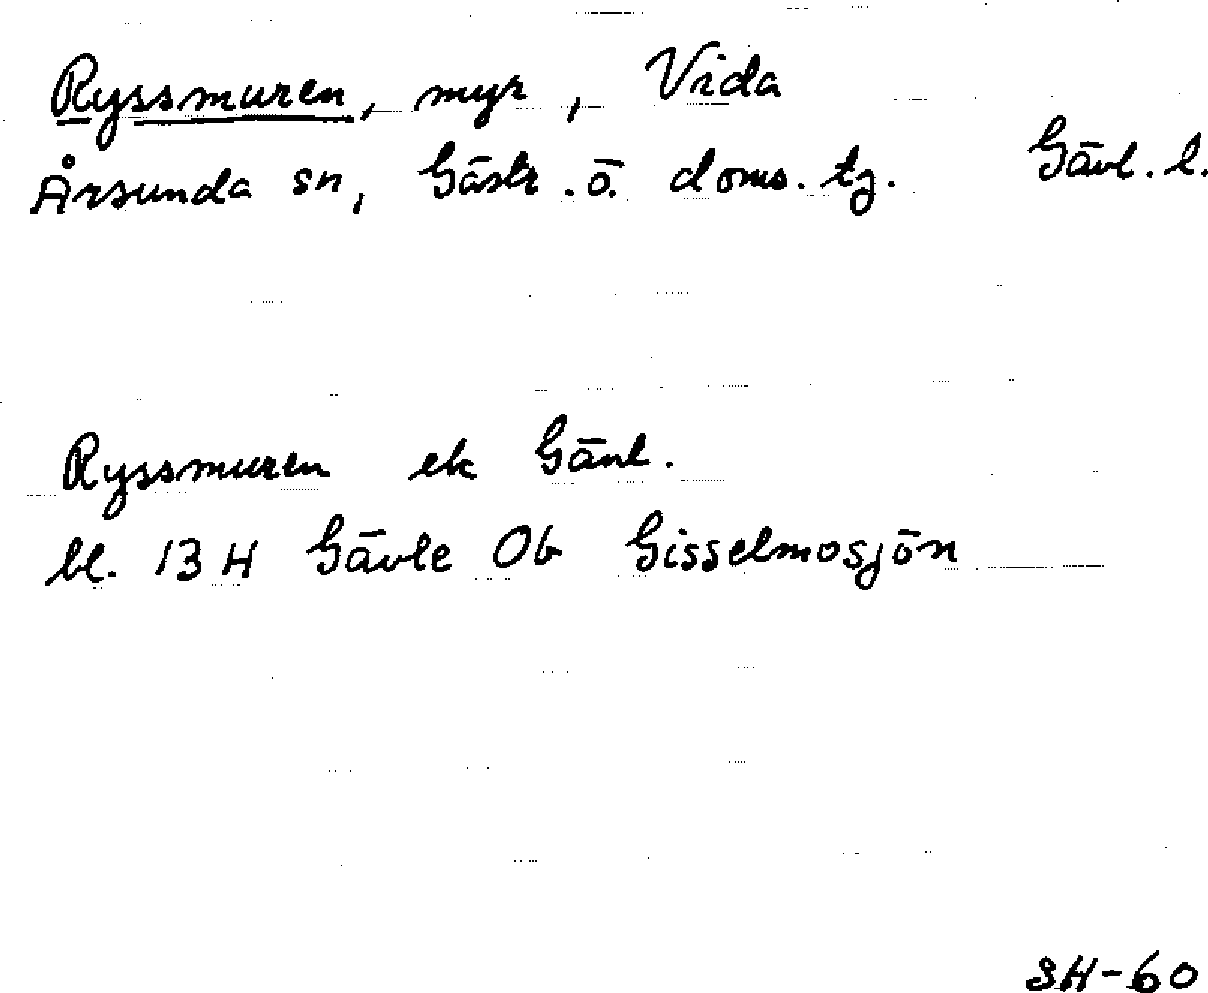 Ryssmuren, myr, Vida
Årsunda sn, Gästr. ö. doms. tj. Gävl. l.
Ryssmuren ek Gävl.
bl. 13 H Gävle 0b Gisselmosjön
SH-60